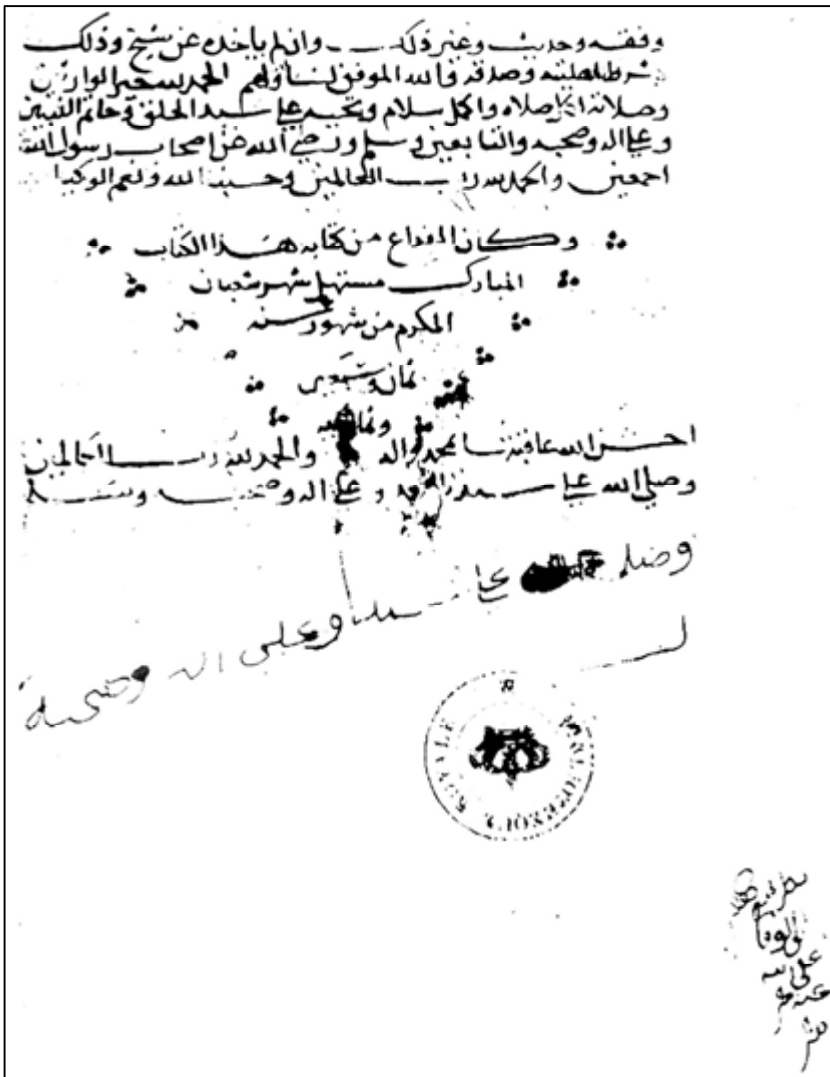 وفقه وحديث وغير ذلك وان لم ياخده عن شيخ وذلك
شرط اهليته وصدقه والله الموفق لنا ولهم الحمد لله خير الوارثين
وصلاته صلاه واكمل سلام وتحيه علي سيد الخلق وخاتم النبيين
وعلي اله وصحبه والتابعين وسلم ورضي الله عن اصحاب رسول الله
اجمعين والحمد لله رب العالمين وحسبنا الله ونعم الوكيل
وكان الفراغ من كتابه هذا الكتاب
المبارك مستهل شهر شعبان
المكرم من شهور سنه
ثمان
احسن الله عاقبتنا بمحمد واله والحمد لله رب العالمين
وصلي الله علي سيدنا وعلي اله وصحبه وسلم
وصلى علي سيدنا وعلى اله وصحبه
BIBLIOTHECA ROYALE
على الله